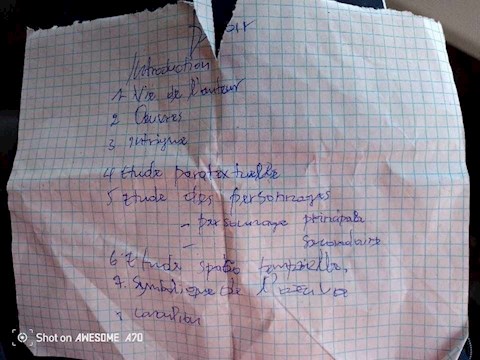 Devoir
Introduction
1 Vie de l'auteur
2 Œuvres
3 Intrigue
4 Etude paratextuelle
5 Etude des personnages
- personnage principale
- secondaire
6 Etude spatio temporelle,
7. Symbolique de l'œuvre
Shot on AWESOME A70